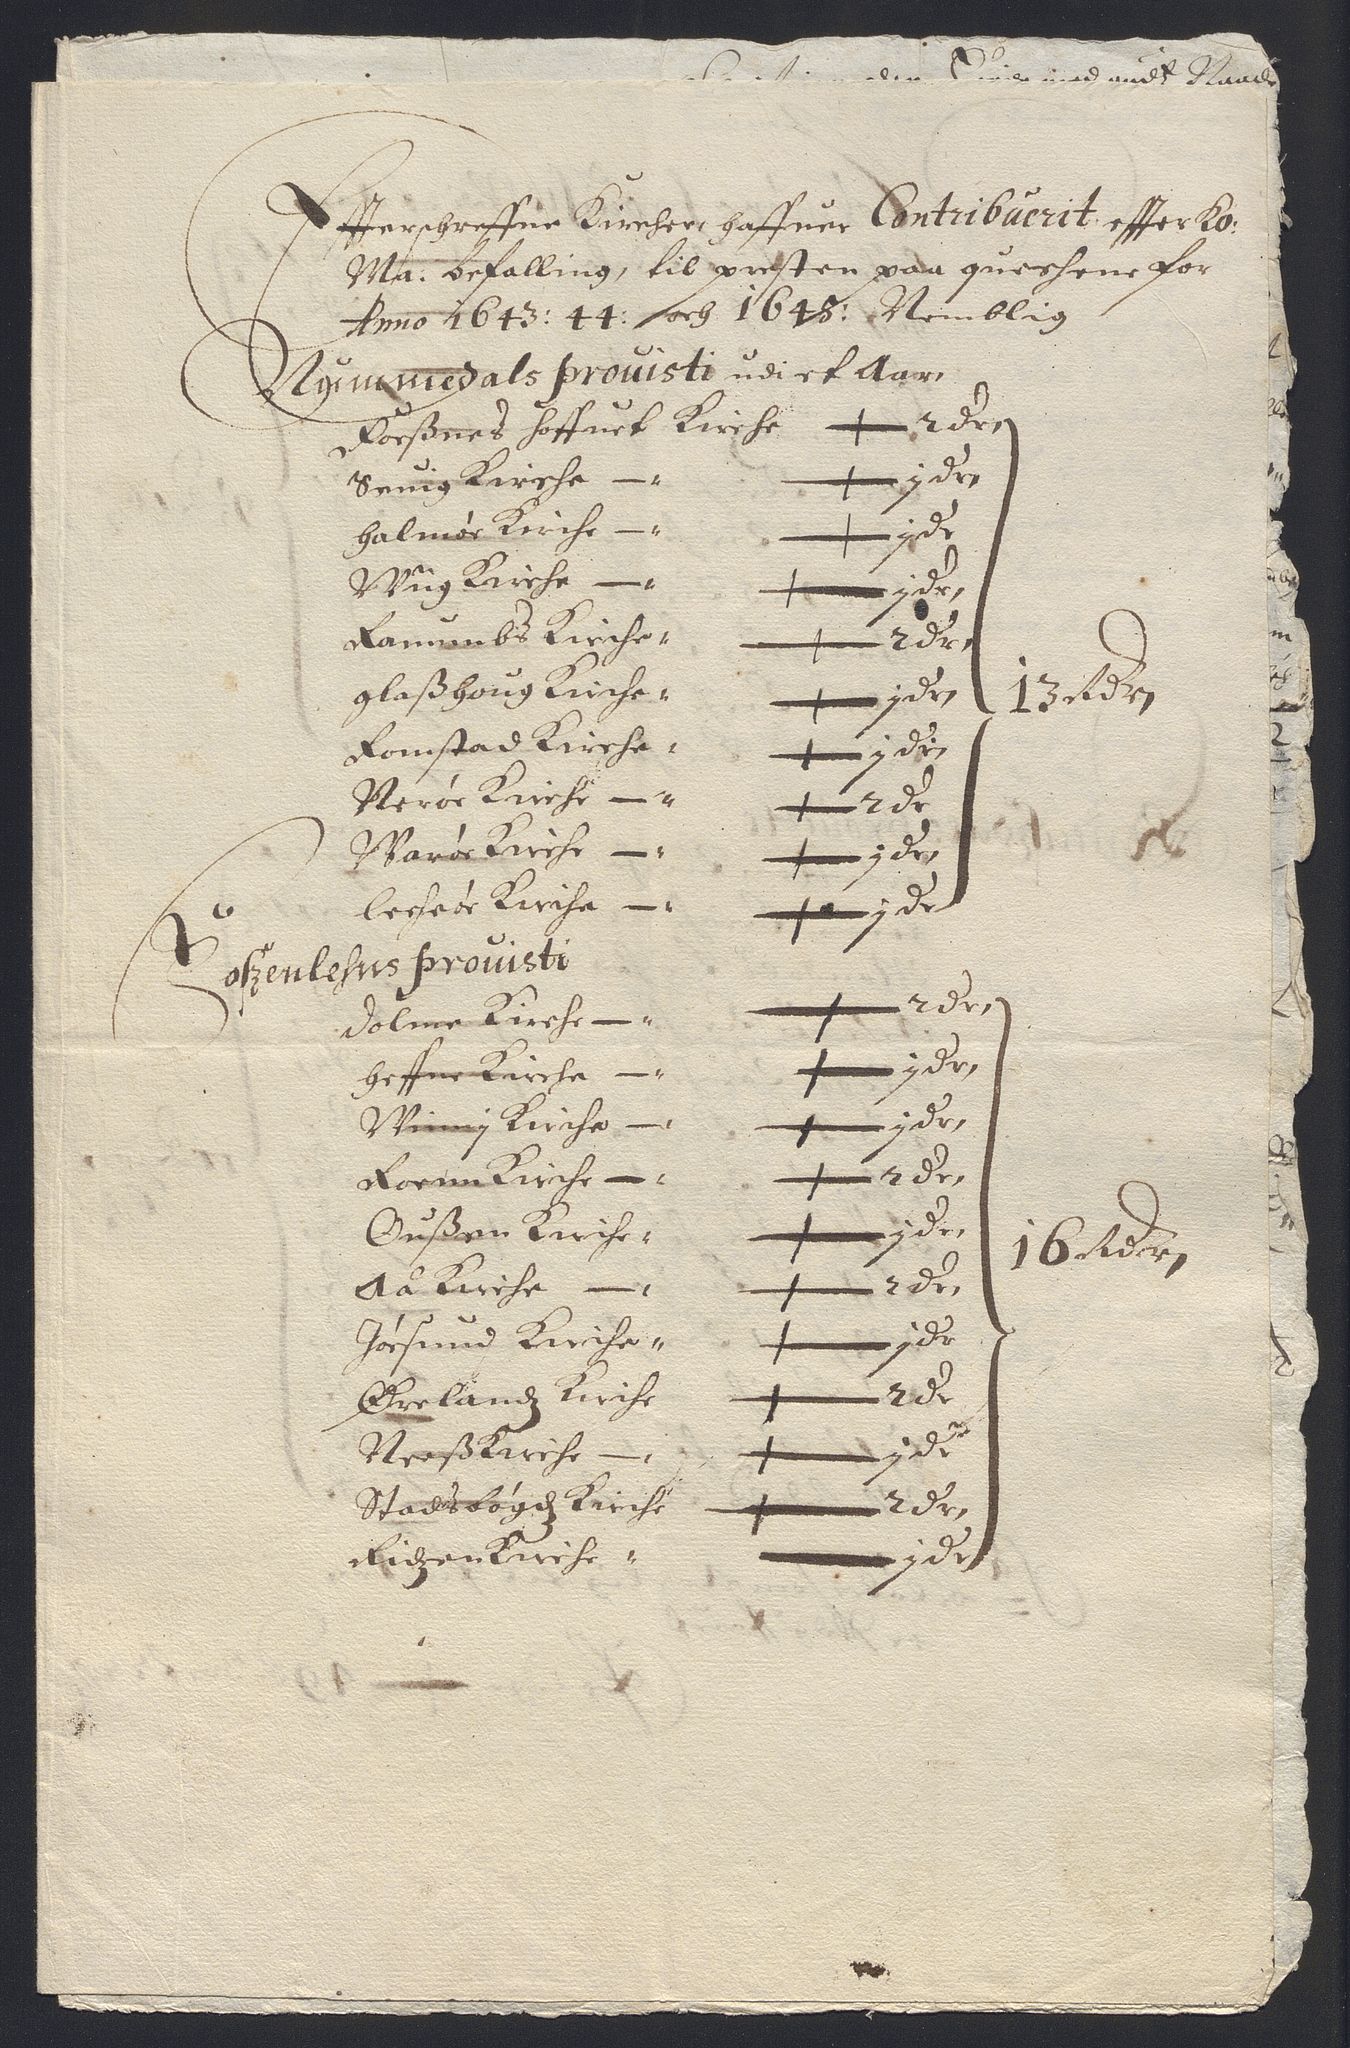 Effterschreffne Kircher haffuer Contribuerit effter Ko:
Ma: befalling, til presten paa quershene for
Anno 1643: 44: och 1645: Nemblig
Nummedals prouisti udi et Aar
Foeßnes hoffuet Kirche + 2 dr
Seuig Kirche + j dr
halmøe Kirche + j dr
Wiig Kirche + j dr
Ranumbs Kirche + 2 dr
glaßhoug Kirche + j dr
Romstad Kirche + j dr
Nerøe Kirche + 2 dr
Warøe Kirche + j dr
lechøe Kirche + j dr
13 Rdr
Foßenlehns prouisti
dolme Kirche + 2 dr
heffne Kirche + j dr
Winnij Kirche + j dr
Roenn Kirche + 2 dr
Oußen Kirche + j dr
Aa Kirche + 2 dr
Jøesund Kirche + j dr
Ørelandz Kirche + 2 dr
Neeß Kirche + j dr
Stadsbøgdz Kirche + 2 dr
Ridzen Kirche j dr
16 Rdr